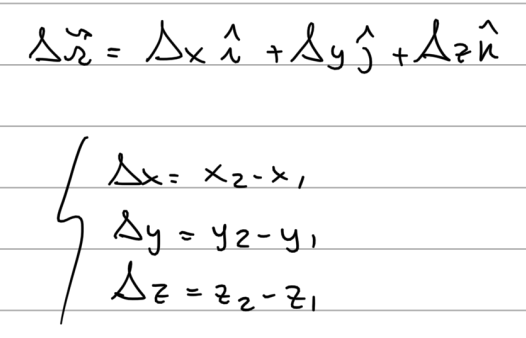 Δr⃗ = Δx î + Δy ĵ + Δz k̂
Δx = x₂ - x₁
Δy = y₂ - y₁
Δz = z₂ - z₁